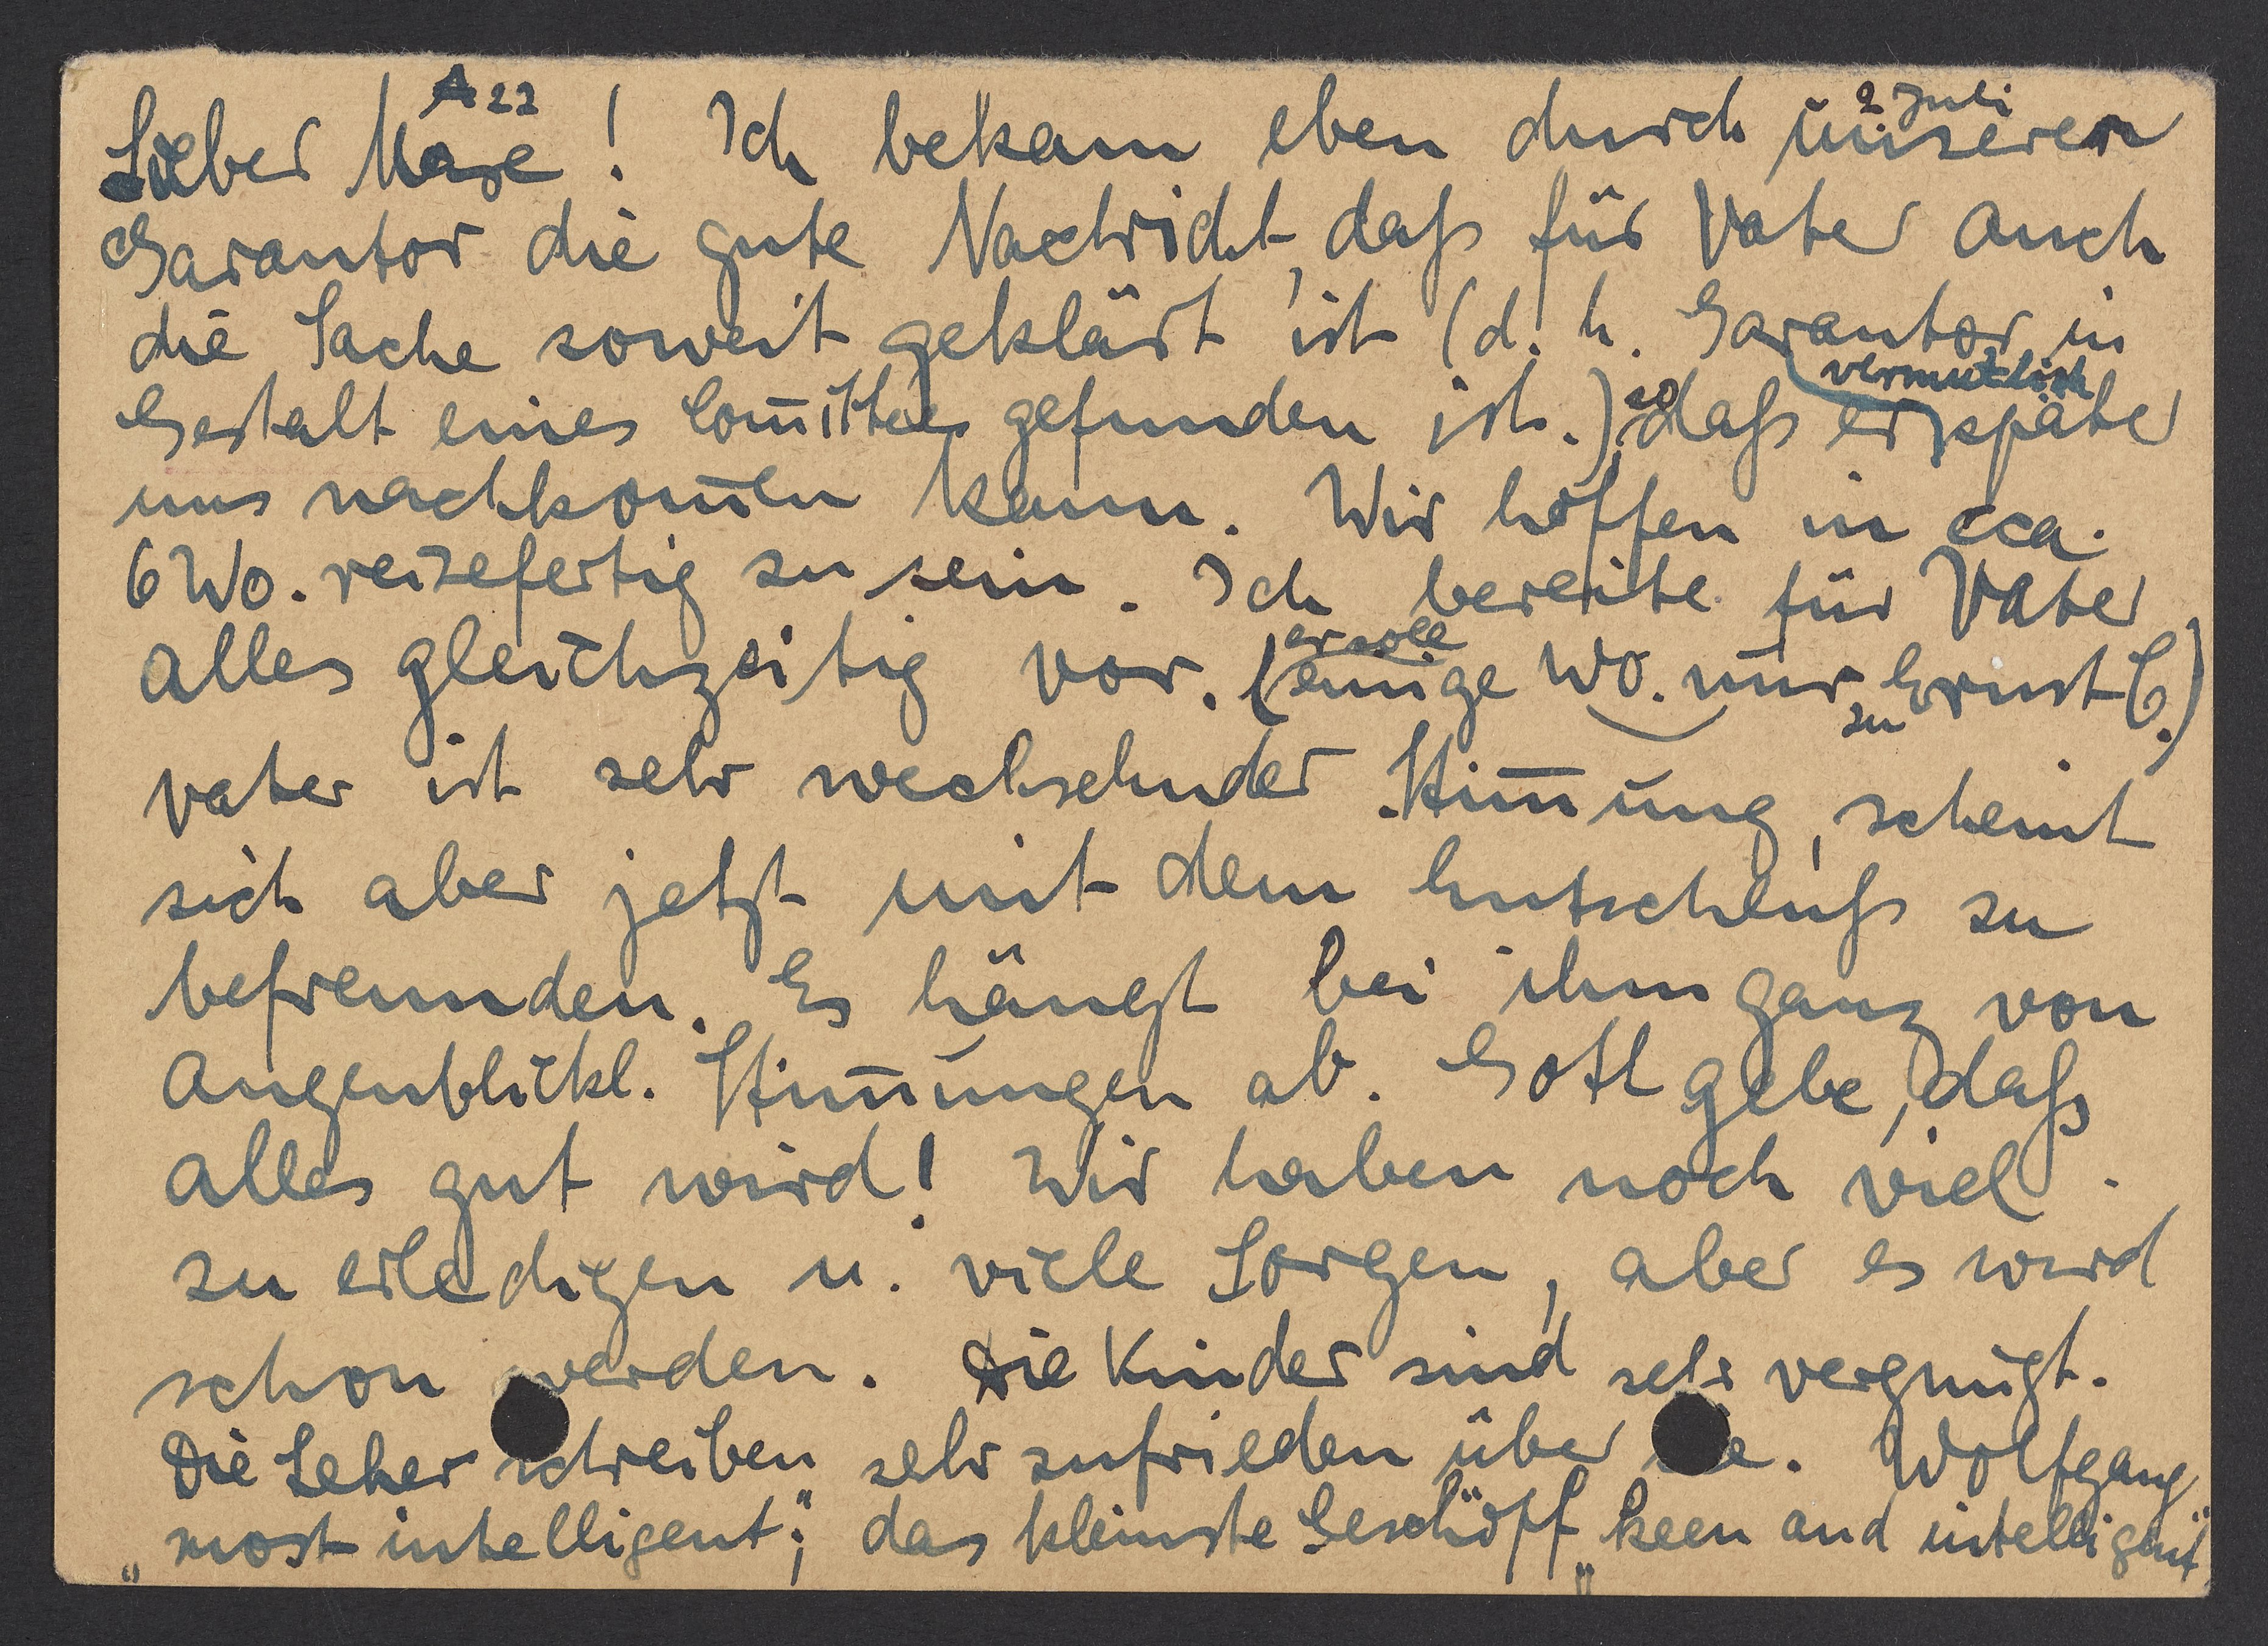 A 22
2 Juli
Lieber Maxe! Ich bekam eben durch unseren
Garantor die gute Nachricht, daß für Vater auch
die Sache soweit geklärt ist (d. h. Garantor in
Gestalt eines Comittees gefunden ist.) so daß er vermutlich später
uns nachkom̄en kann. Wir hoffen in cca.
6 Wo. reisefertig zu sein. Ich bereite für Vater
alles gleichzeitig vor. (er soll einige Wo. nur zu Ernst C.)
Vater ist sehr wechselnder Stim̄ung, scheint
sich aber jetzt mit dem Entschluß zu
befreunden. Es hängt bei ihm ganz von
augenblickl. Stim̄ungen ab. Gott gebe, daß
alles gut wird! Wir haben noch viel
zu erledigen u. viele Sorgen, aber es wird
schon werden. Die Kinder sind sehr vergnügt.
Die Leher schreiben sehr zufrieden über e. Wolfgang
„most intelligent“; das kleinste Geschöpf „keen and intelligent“